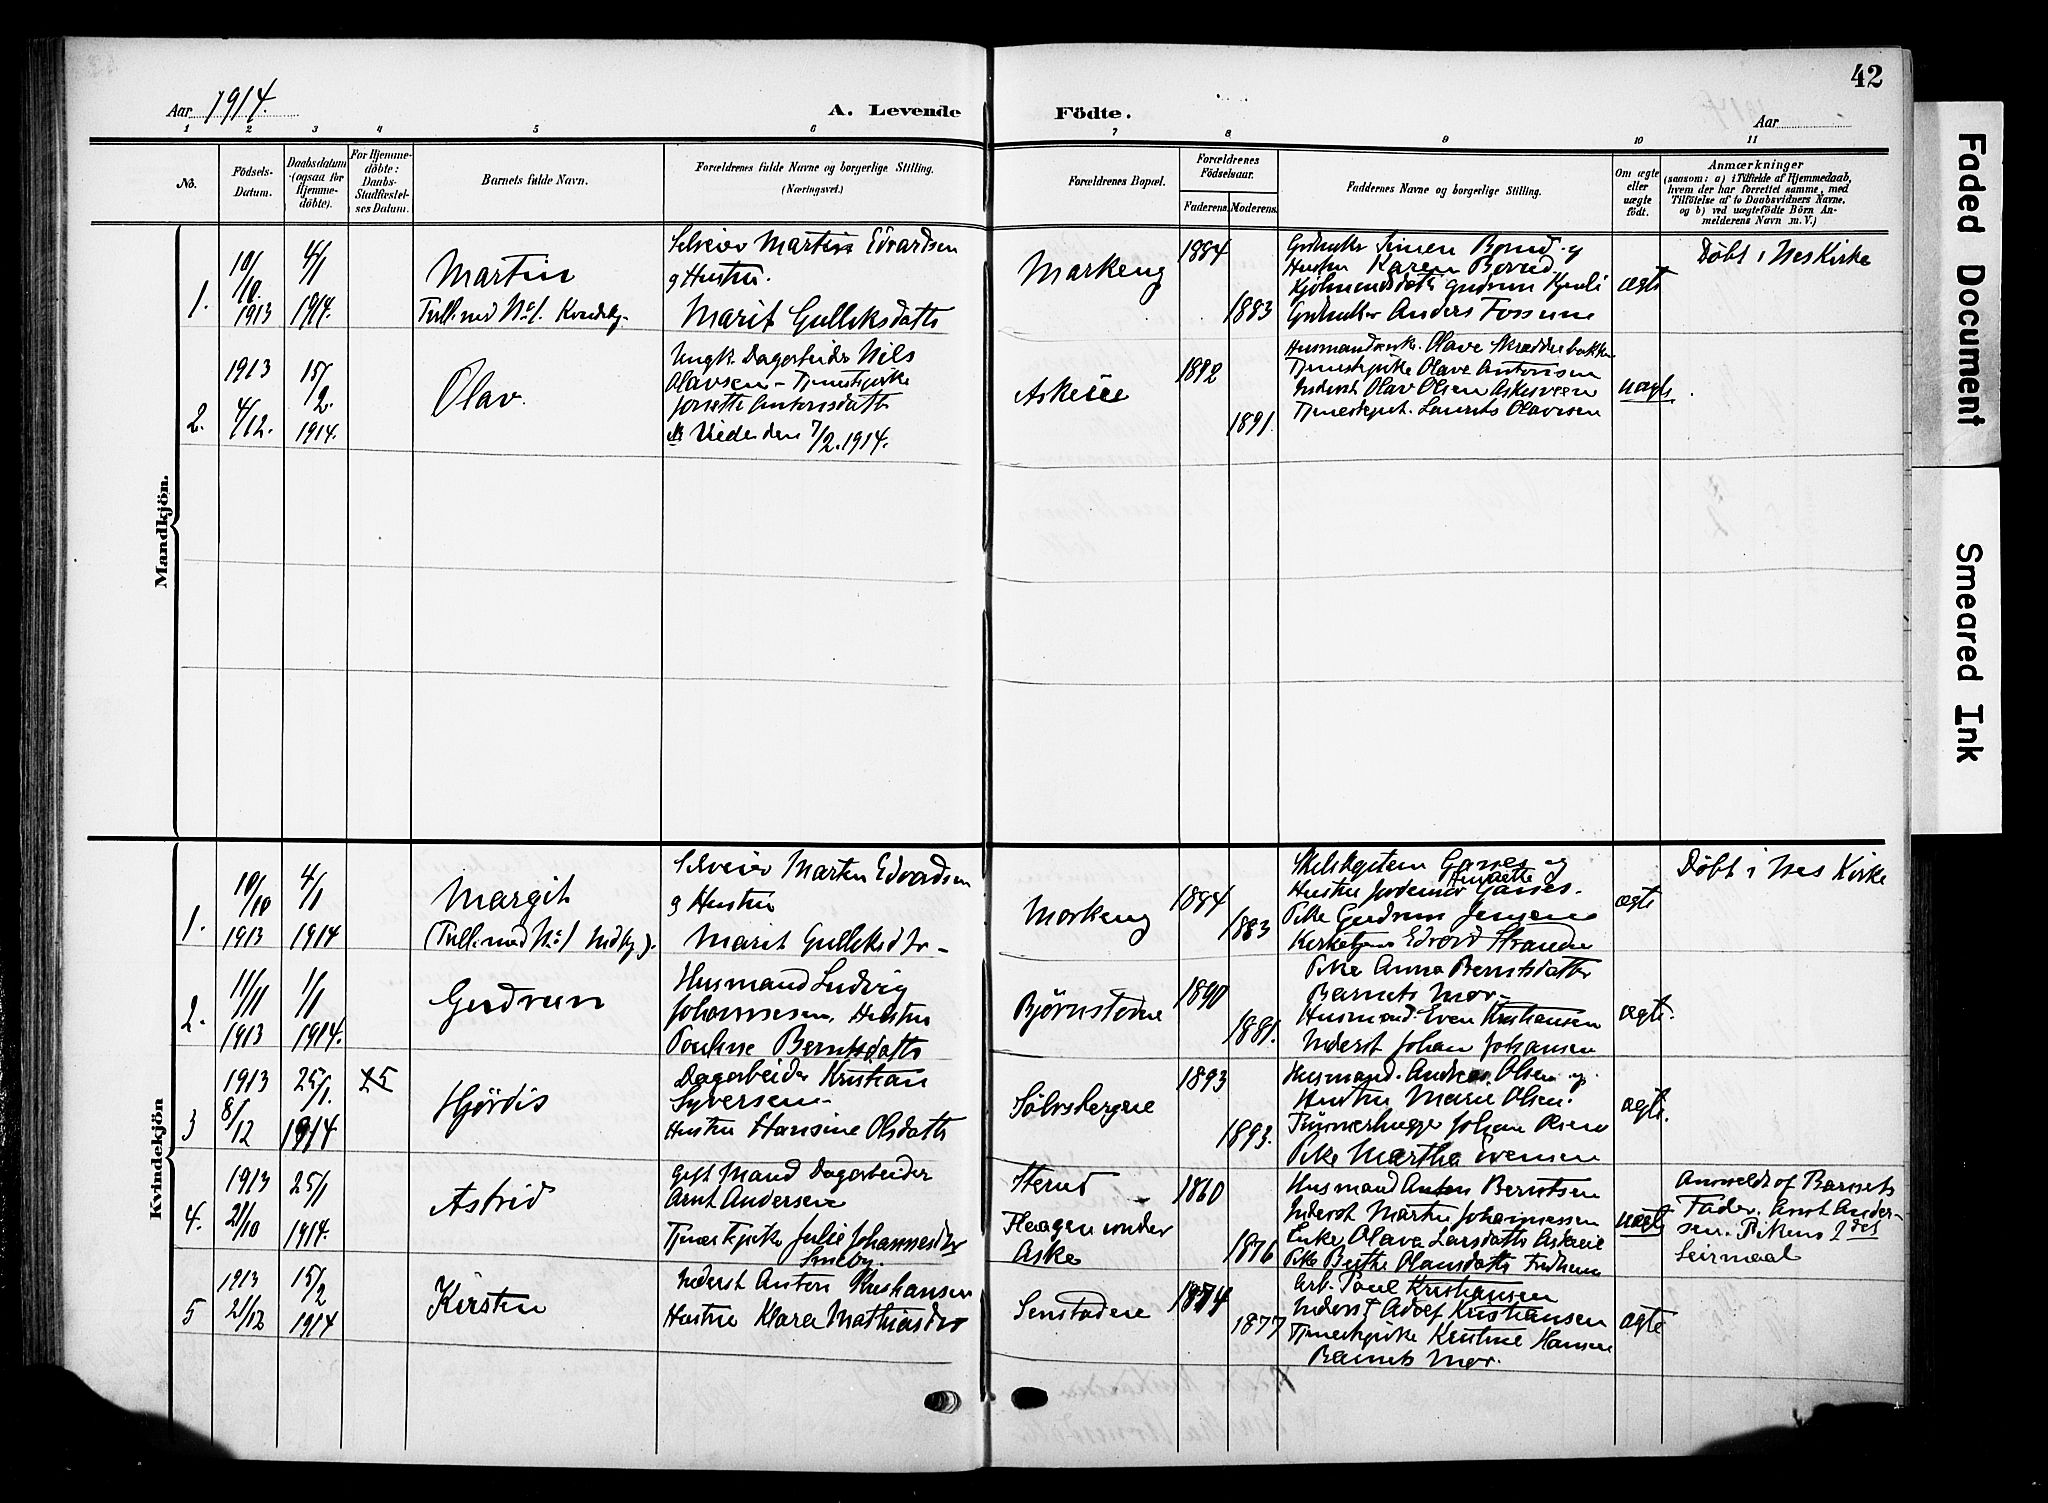 42
Aar 1914.
A. Levende Födte.
Aar
1 2 3 4 5 6 7 8 9 10 11
No.
Födsels-
Datum.
Daabsdatum
(ogsaa for
Hjemme-
döbte).
For Hjemme-
döbte:
Daabs-
Stadfæstel-
ses Datum.
Barnets fulde Navn.
Forældrenes fulde Navne og borgerlige Stilling.
(Næringsvei.)
Forældrenes Bopæl.
Forældrenes
Födselsaar.
Faderens.
Moderens.
Faddernes Navne og borgerlige Stilling.
Om ægte
eller
uægte
födt.
Anmærkninger
(saasom: a) i Tilfælde af Hjemmedaab,
hvem der har forrettet samme, med
Tilföielse af to Daabsvidners Navne,
og b) ved uægtefödte Börn An-
melderens Navn m. V.)
Mandkjön.
1.
10/
10.
1913
4/1
1914.
Martin
Tvill. med No 1. Kvindekj.
Selveier Martin Edvardsen
og Hustru
Marit Gulliksdatter
Markeng
1884
1883
Gaardbruker Simen Borud og
Hustru Karen Borud
Gudrun
Gaardbruker Anders Fossum
ægte
Døbt i Nes Kirke
2.
1913
4/12.
15/
2.
1914.
Olav.
Ungk. Dagarbeider Nils
Olavsen - Tjenestepike
Antonsdatter
Viede den 7/2. 1914.
Askeie
1892
1891.
Olave Skrædderbakken
Tjenestepike Olave Antonsen
Inderst Olav Olsen
Tjenestegut. Laurits Olavsen
uægte
Kvindekjön
1.
10/10
1913
4/1
1914
Margit
(Tvill. med No 1 Mdkj.).
Selveier Martin Edvardsen
og Hustru
Marit Gulliksdtr.
Markeng
1884
1883
Garses og
Hustru Jordemor Henriette Garses.
Pike Gudrun Jensen
Kirketjener Edvard Strande
ægte
Døbt i Nes Kirke
2.
11/11
1913
1/1
1914.
Gudrun
Husmand Ludvig
Johannesen, Hustru
Pauline Berntsdatter
Bjørnstadeie
1890
1881.
Pike Anna Berntsdatter
Barnets Mor.
Husmand. Even Kristiansen
Inderst Johan Johansen
ægte.
3
1913
8/12
25/1.
1914
25
Hjördis
Dagarbeider Kristian
Syversen
Hustru Hansine Olsdatter
Sølvsbergeie
1893
1893.
Husmand. Andreas Olsen og
Hustru Marie Olsen.
Tømmerhugger Johan Olsen
Pike Martha Evensen
ægte.
4.
1913
21/10
25/1
1914.
Astrid
Gift Mand Dagarbeider
Arnt Andersen
Tjenestepike Julie Johannesdtr
Smeby.
Sterud
Haagen under
Aske
1860
1876
Husmand Anton Berntsen
Inderst Martin Johannessen
Enke Olava Larsdatter Askeie
Pike Berthe Olausdatter Fredheim
uægte
Anmeldt af Barnets
Fader. Arnt Ander-
sen. Pikens 2det
Leirmaal
5
1913
21/12
15/2
1914
Kirsten
Inderst Anton Kristiansen
Hustru Klara Mathiasdtr
Senstadeie
1874
1877
Arb. Paul Kristiansen
Inderst Adolf Kristiansen
Tjenestepike Kristine Hansen
Barnets Mor.
ægte
Faded Document
Smeared Ink